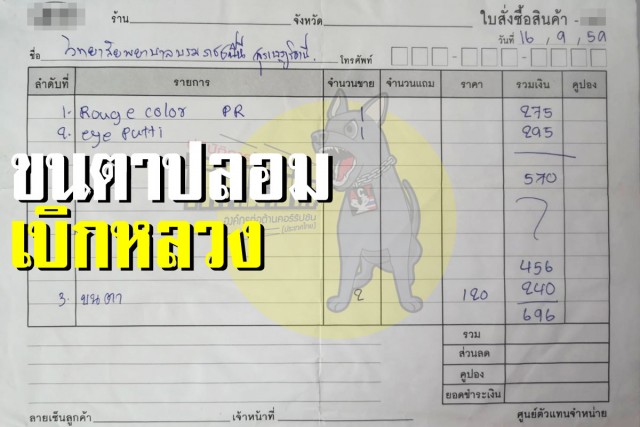 ร้าน จังหวัด ใบสั่งซื้อสินค้า -
วันที่ 16 , 9 , 59
ชื่อ วิทยาลัยพยาบาลบรมราชชนนี สุราษฎร์ธานี. โทรศัพท์
ลำดับที่ รายการ จำนวนขาย จำนวนแถม ราคา รวมเงิน คูปอง
1. Rouge color PR 1 275
2. eye Putti 295
570
ขนตาปลอม
องค์กรต้านคอร์รัปชัน
(ประเทศไทย)
เบิกหลวง
456
3. ขนตา 2 120 240
696
รวม
ส่วนลด
คูปอง
ยอดชำระเงิน
ลายเซ็นลูกค้า เจ้าหน้าที่ ศูนย์ตัวแทนจำหน่าย